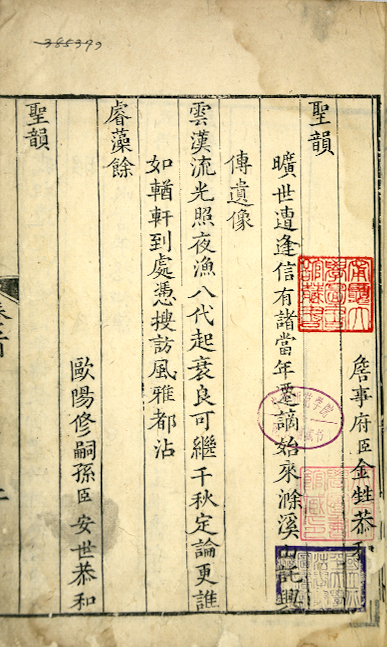 385399
聖韻
詹事府臣金甡恭和
曠世遭逢信有諸當年遷謫始來滁溪山託興
傳遺像
雲漢流光照夜漁八代起衰良可繼千秋定論更誰
如輶軒到處憑搜訪風雅都沾
睿藻餘
歐陽修嗣孫臣安世恭和
聖韻